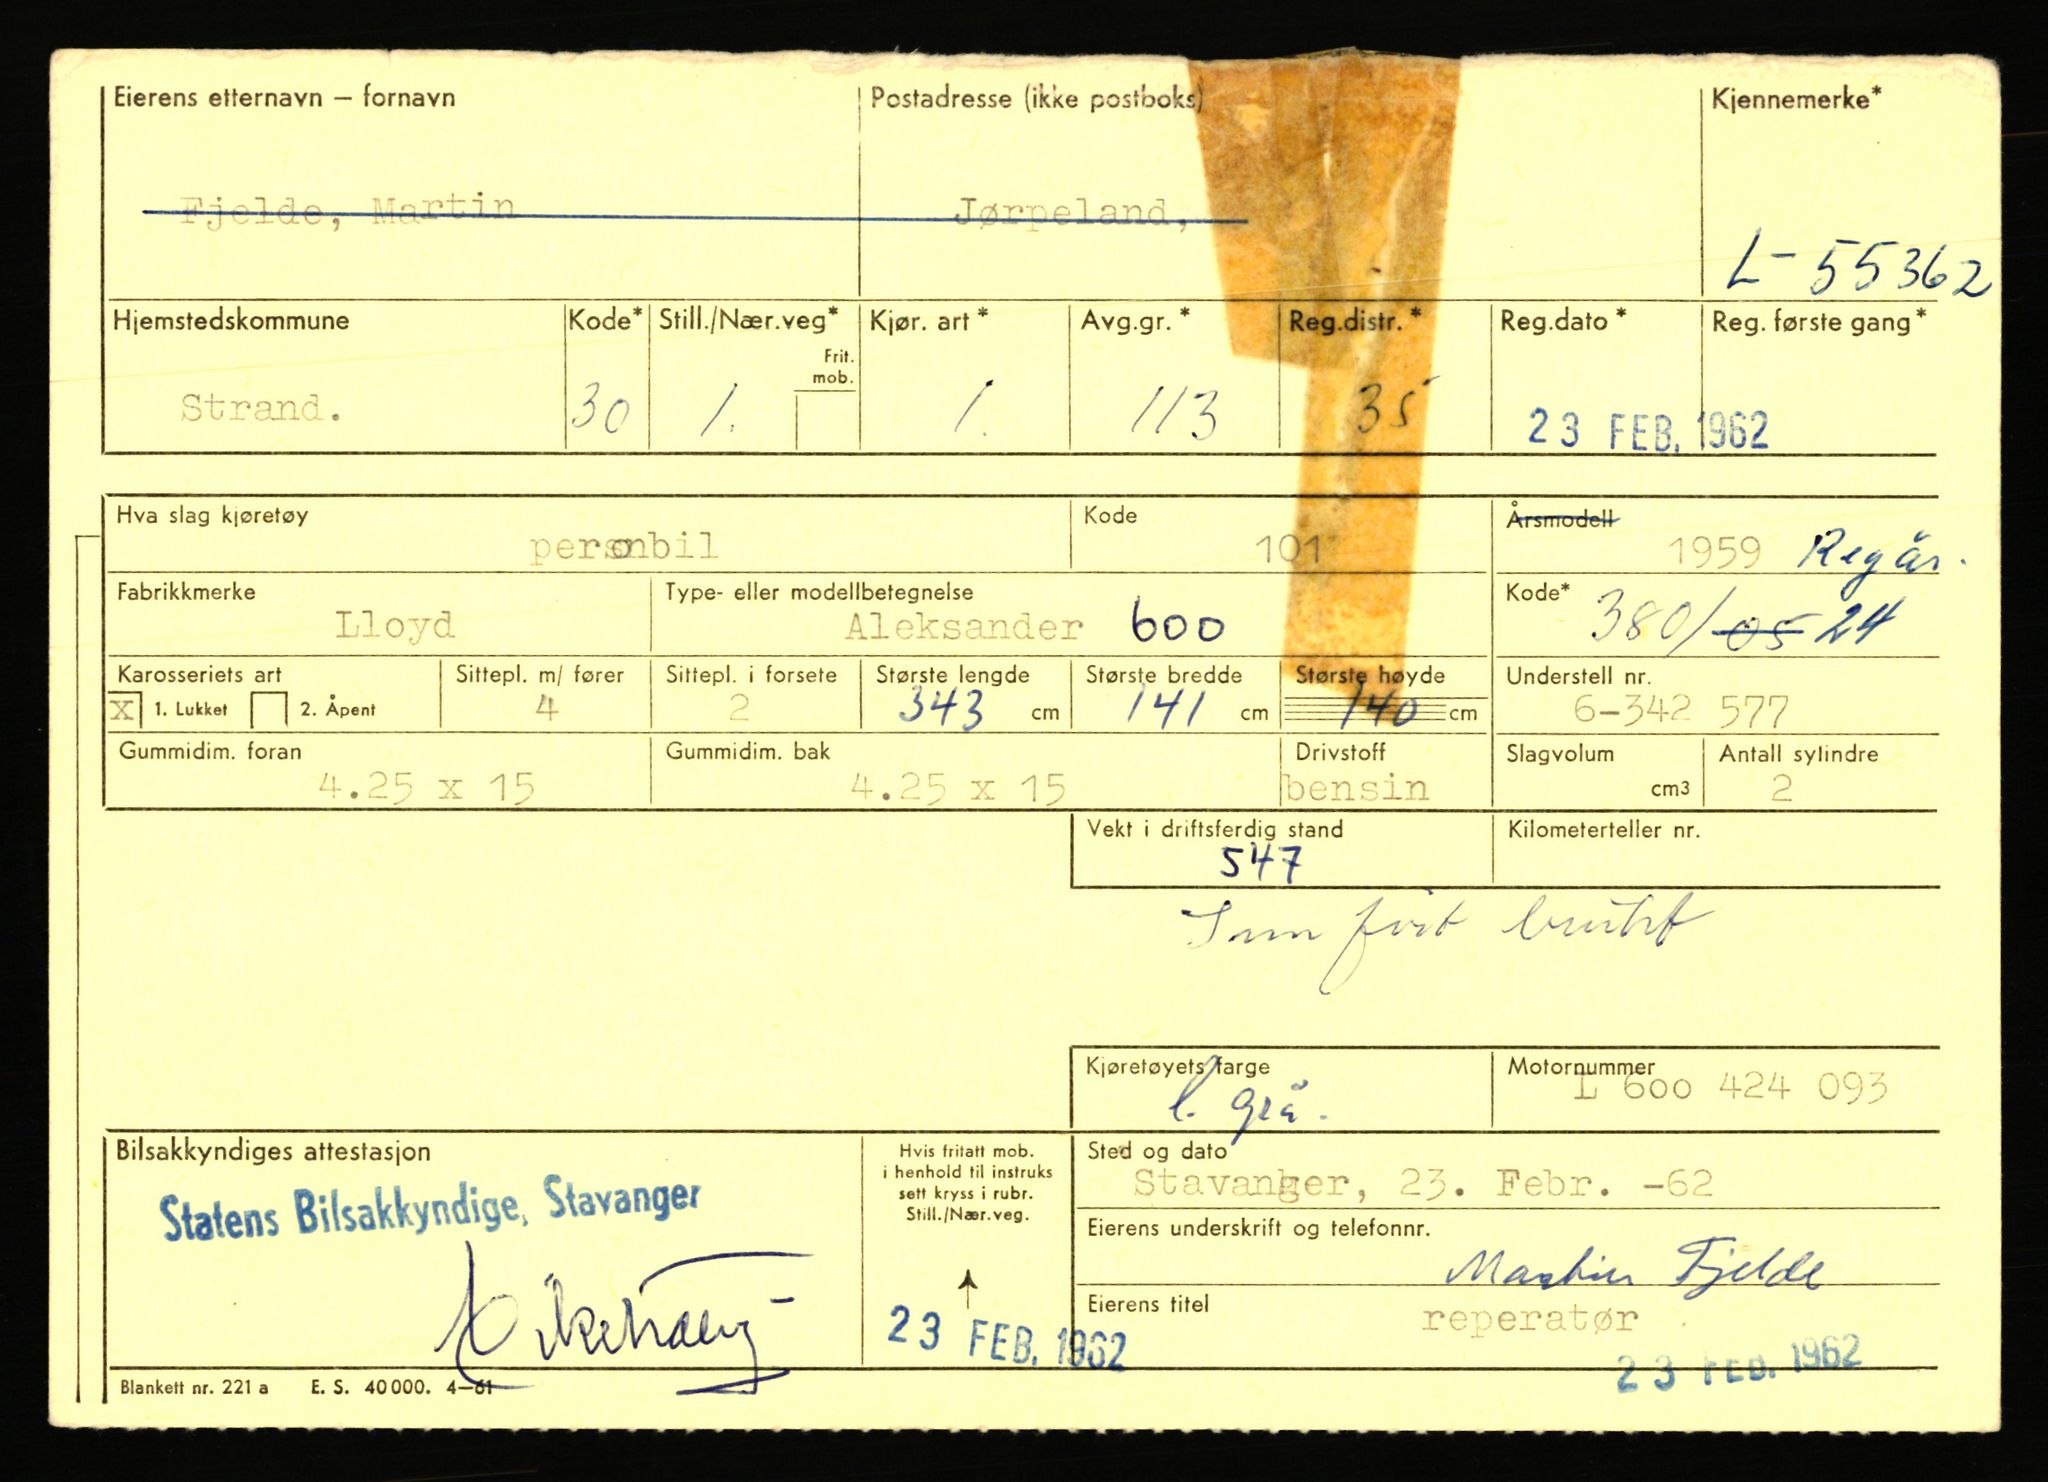 Eierens etternavn – fornavn Postadresse (ikke postboks) Kjennemerke*
Fjelde, Martin Jørpeland,
L-55362
Hjemstedskommune Kode* Still./Nær.veg* Kjør. art* Avg.gr.* Reg.distr.* Reg.dato* Reg. første gang*
Frit.
mob.
Strand. 30 1. 1. 113 35 23 FEB. 1962
Hva slag kjøretøy Kode Årsmodell
personbil 101 1959 Regår.
Fabrikkmerke Type- eller modellbetegnelse Kode*
Lloyd Aleksander 600 380/05 24
Karosseriets art Sittepl. m/ fører Sittepl. i forsete Største lengde Største bredde Største høyde Understell nr.
X 1. Lukket 2. Åpent 4 2 343 cm 141 cm 140 cm 6-342 577
Gummidim. foran Gummidim. bak Drivstoff Slagvolum Antall sylindre
4.25 x 15 4.25 x 15 bensin cm3 2
Vekt i driftsferdig stand Kilometerteller nr.
547
Innført brukt
Kjøretøyets farge Motornummer
l. grå. L 600 424 093
Bilsakkyndiges attestasjon Hvis fritatt mob.
i henhold til instruks
sett kryss i rubr.
Still./Nær.veg.
Sted og dato
Stavanger, 23. Febr. -62
Statens Bilsakkyndige, Stavanger
Eierens underskrift og telefonnr.
Martin Fjelde
Eierens titel
reperatør
23 FEB. 1962
23 FEB. 1962
Blankett nr. 221 a E. S. 40000. 4–61